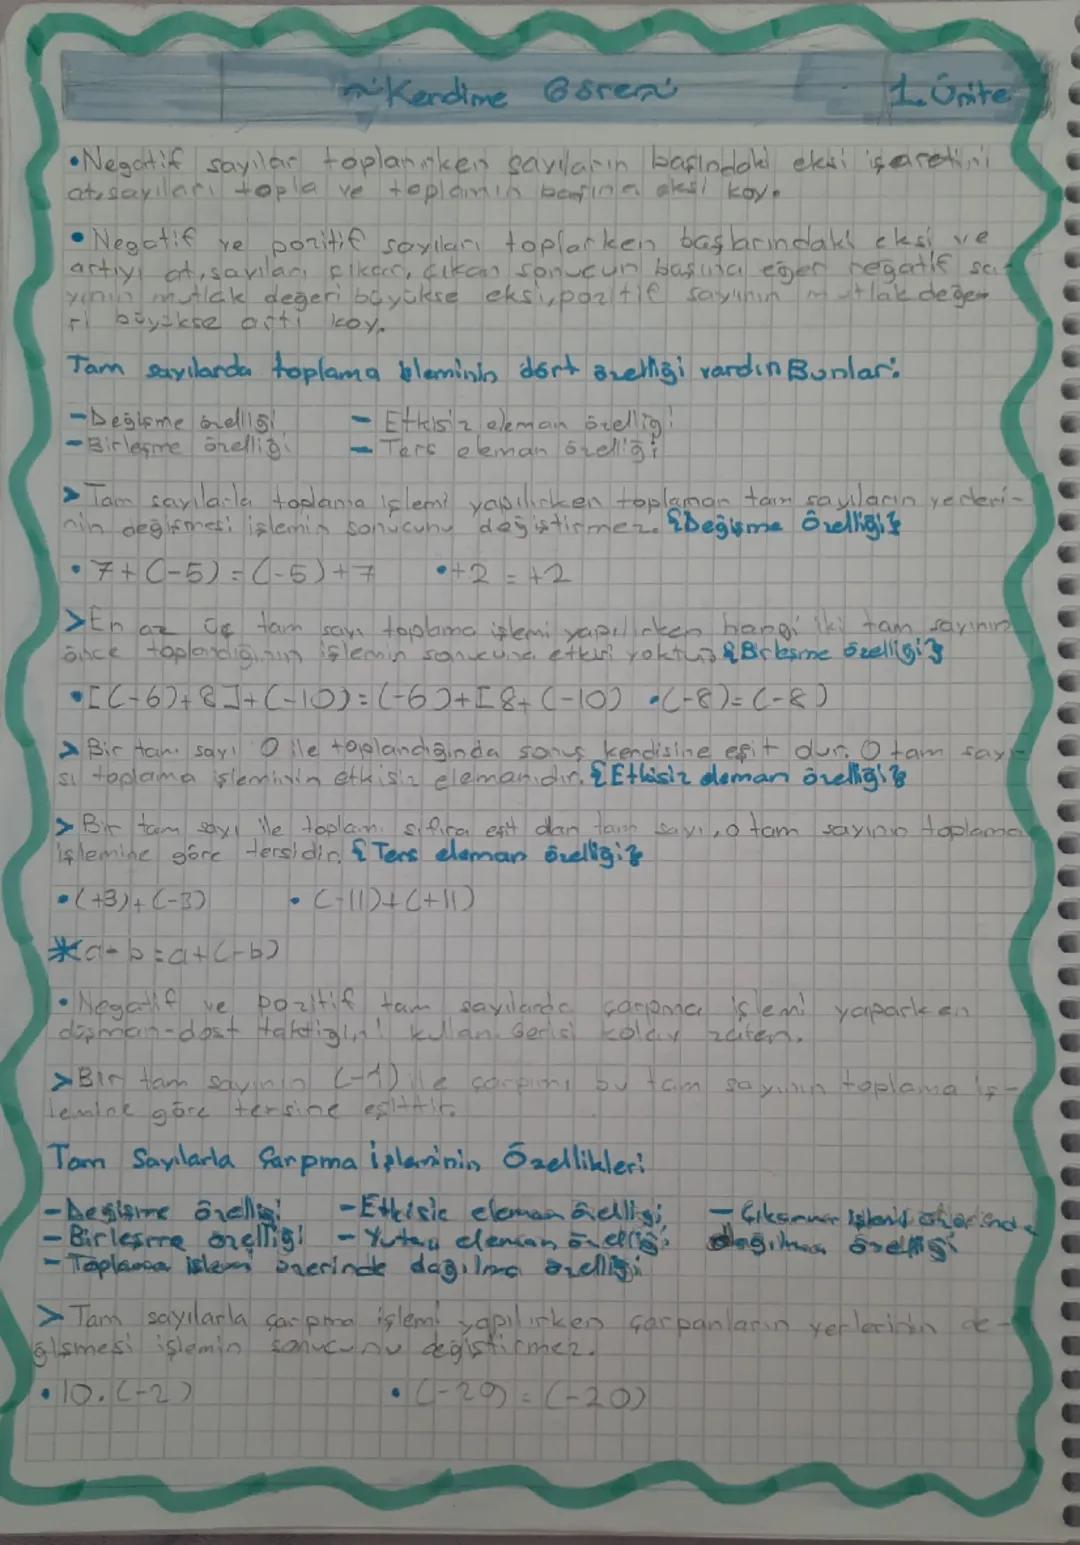 ~Kendime Göre~ 1. Ünite
•Negatif sayılar toplanırken sayıların başındaki eksi işaretini
at, sayıları topla ve toplamın başına eksi koy.
•Negatif ve pozitif sayıları toplarken başlarındaki eksi ve
artıyı at, sayıları çıkar, çıkan sonucun başına eğer negatif sa-
yının mutlak değeri büyükse eksi, pozitif sayının mutlak değe-
ri büyükse artı koy.
Tam sayılarda toplama işleminin dört özelliği vardır. Bunlar:
-Değişme özelliği - Etkisiz eleman özelliği
-Birleşme özelliği - Ters eleman özelliği
> Tam sayılarla toplama işlemi yapılırken toplanan tam sayıların yerleri-
nin değişmesi işlemin sonucunu değiştirmez. {Değişme Özelliği}
• 7+(-5)=(-5)+7 •+2 = +2
>En az üç tam sayı toplama işlemi yapılırken hangi iki tam sayının
önce toplandığının işlemin sonucuna etkisi yoktur {Birleşme özelliği}
•[(-6)+8]+(-10)=(-6)+[8+(-10) •(-8)=(-8)
> Bir tam sayı 0 ile toplandığında sonuç kendisine eşit olur. 0 tam sayı-
sı toplama işleminin etkisiz elemanıdır. {Etkisiz eleman özelliği}
> Bir tam sayı ile toplamı sıfıra eşit olan tam sayı, o tam sayının toplama
işlemine göre tersidir. {Ters eleman özelliği}
•(+3)+(-3) • (-11)+(+11)
*a-b=a+(-b)
• Negatif ve pozitif tam sayılarda çarpma işlemi yaparken
düşman-dost taktiğini kullan. Gerisi kolay zaten.
>Bir tam sayının (-1) ile çarpımı bu tam sayının toplama iş-
lemine göre tersine eşittir.
Tam Sayılarla Çarpma İşleminin Özellikleri
-Değişme özelliği -Etkisiz eleman özelliği - Çıkarma işlemi üzerinde
-Birleşme özelliği - Yutan eleman özelliği dağılma özelliği
-Toplama işlemi üzerinde dağılma özelliği
> Tam sayılarla çarpma işlemi yapılırken çarpanların yerlerinin de-
ğişmesi işlemin sonucunu değiştirmez.
•10.(-2) • (-20)=(-20)